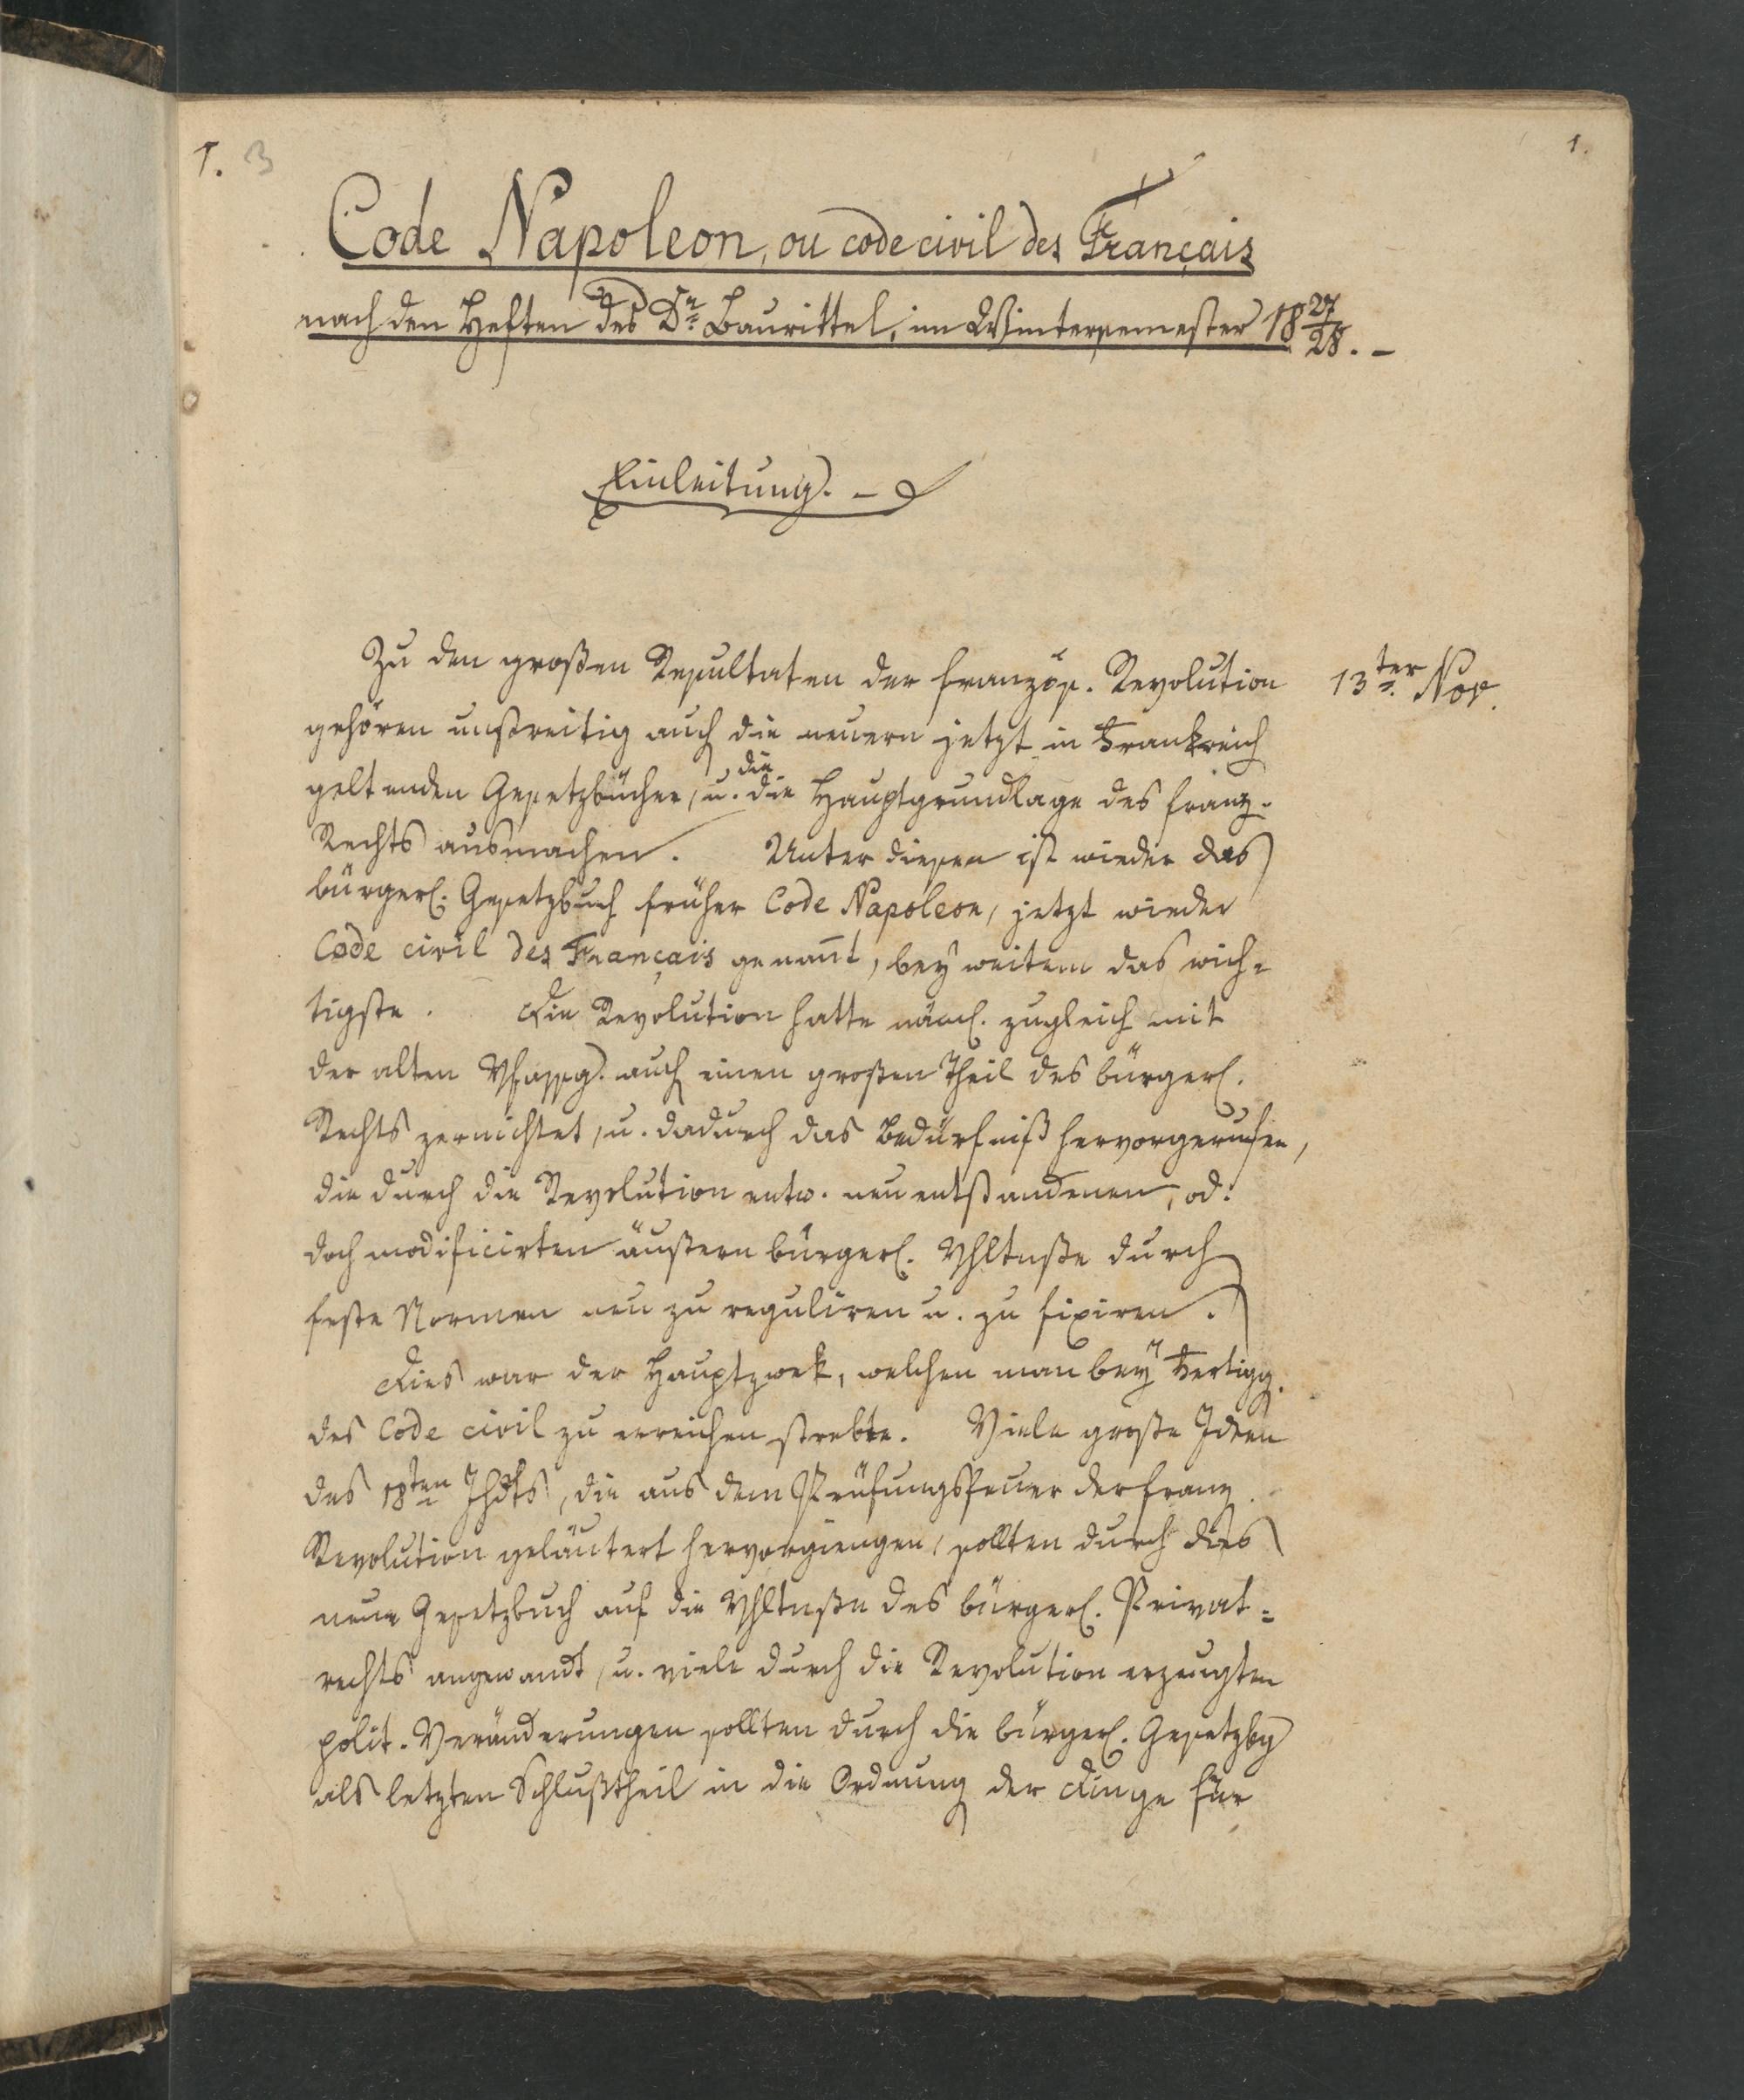 1. 3
1.
Code Napoleon, ou code civil des Français
nach den Heften des Dr. Baurittel, im Wintersemester 18 27/28. -
Einleitung. -
Zu den großen Resultaten der französ. Revolution
13ter Nov.
gehören unstreitig auch die neuern jetzt in Frankreich
die
geltenden Gesetzbücher, u. die Hauptgrundlage des franz.
Rechts ausmachen. Unter diesen ist wieder das
bürgerl. Gesetzbuch früher Code Napoleon, jetzt wieder
Code civil des Français genan̄t, bey weitem das wich=
tigste. Die Revolution hatte näml. zugleich mit
der alten Vfassg. auch einen großen Theil des bürgerl.
Rechts zernichtet, u. dadurch das Bedürfniß hervorgerufen,
die durch die Revolution entw. neu entstandenen, od:
doch modificirten äußern bürgerl. Vhltnße durch
feste Normen neu zu reguliren u. zu fixiren.
Dies war der Hauptzwek, welchen man bey Fertigg.
des Code civil zu erreichen strebte. Viele große Ideen
des 18ten Jhdts, die aus dem Prüfungsfeuer der franz.
Revolution geläutert hervorgiengen, sollten durch dies
neue Gesetzbuch auf die Vhltnße des bürgerl. Privat=
rechts angewandt, u. viele durch die Revolution erzeugten
polit. Veränderungen sollten durch die bürgerl. Gesetzbg
als letzten Schlußtheil in die Ordnung der Dinge für